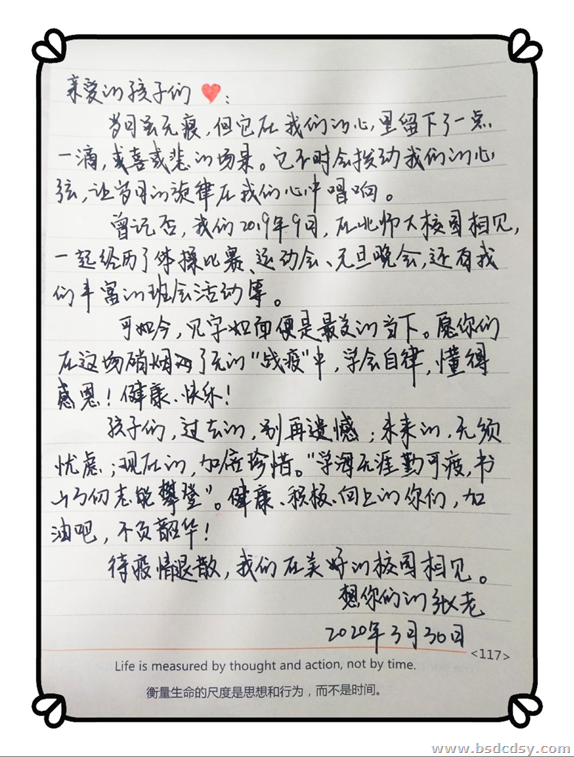 亲爱的孩子们❤:
岁月虽无痕,但它在我们的心里留下了一点
一滴,或喜或悲的场景。它不时会拨动我们的心
弦,让岁月的旋律在我们心中唱响。
曾记否,我们2019年9月,在北师大校园相见,
一起经历了体操比赛、运动会、元旦晚会,还有我
们丰富的班会活动等。
可如今,见字如面便是最美的当下。愿你们
在这场硝烟四了无的"战疫"中,学会自律,懂得
感恩!健康、快乐!
孩子们,过去的,别再遗憾;未来的,无须
忧虑;现在的,加倍珍惜。"学海无涯勤可渡,书
山万仞志能攀登"。健康、积极、向上的你们,加
油吧,不负韶华!
待疫情退散,我们在美好的校园相见。
想你们的张老
2020年3月30日
<117>
Life is measured by thought and action, not by time.
衡量生命的尺度是思想和行为,而不是时间。
www.bsdcdsy.com